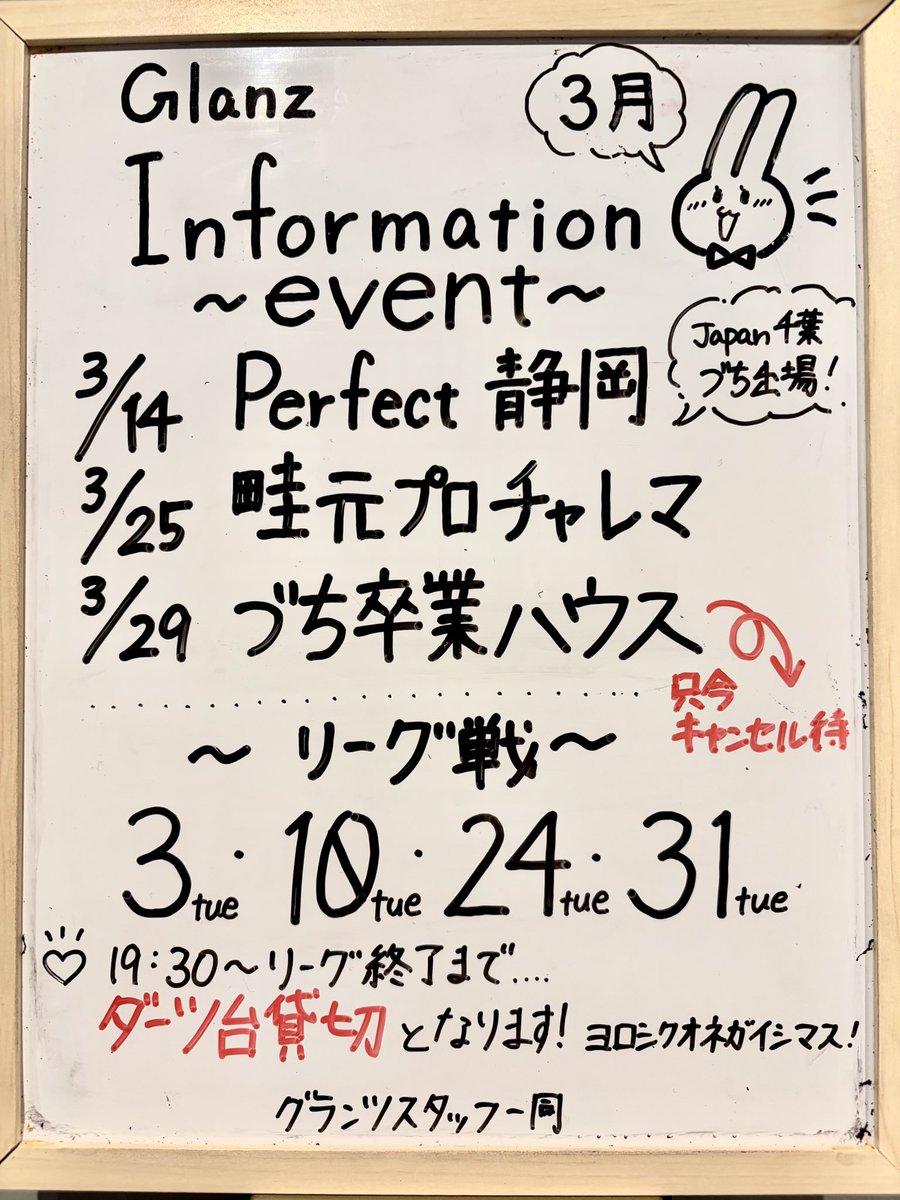 Glanz
3月
Information
～event～
Japan千葉
づち出場!
3/14 Perfect 静岡
3/25 畦元プロチャレマ
3/29 づち卒業ハウス
只今
キャンセル待
～リーグ戦～
3tue・10tue・24tue・31tue
19:30～リーグ終了まで....
ダーツ台貸切となります! ヨロシクオネガイシマス!
グランツスタッフ一同